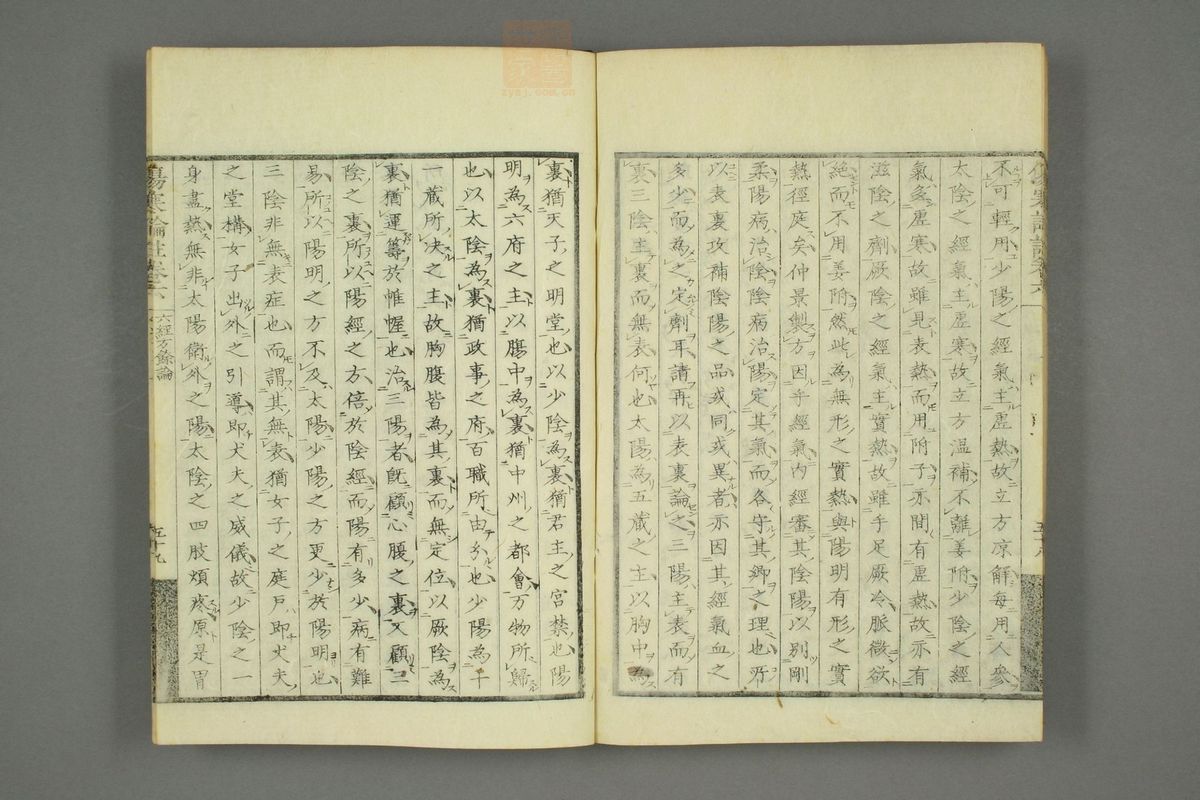 不可輕用少陽之經氣主虛熱故立方凉解每用人參
太陰之經氣主虛寒故立方溫補不離姜附少陰之經
氣多虛寒故雖見表熱而用附子亦間有虛熱故亦有
滋陰之劑厥陰之經氣主實熱故雖手足厥冷脈微欲
絕而不用姜附然此為無形之實熱與陽明有形之實
熱徑庭矣仲景製方因乎經氣內經審其陰陽以別剛
柔陽病治陰陰病治陽定其氣而各守其鄉之理也所
以表裏攻補陰陽之品或同或異者亦因其經氣血之
多少而為之定劑耳請再以表裏論之三陽主表而有
裏三陰主裏而無表何也太陽為五藏之主以胸中為
裏猶天子之明堂也以少陰為裏猶君主之宮禁也陽
明為六府之主以腸中為裏猶中州之都會万物所歸
也以太陰為裏猶政事之府百職所由分也少陽為十
一藏所決之主故胸腹皆為其裏而無定位以厥陰為
裏猶運籌於帷幄也治三陽者既顧心腹之裏又顧三
陰之裏所以陽經之方倍於陰經而陽有多少病有難
易所以陽明之方不及太陽少陽之方更少於陽明也
三陰非無表症也而謂其無表猶女子之庭戶即丈夫
之堂構女子出外之引導即丈夫之威儀故少陰之一
身盡熱無非太陽衛外之陽太陰之四肢煩疼原是胃
傷寒論註卷六
六經方餘論
五十九